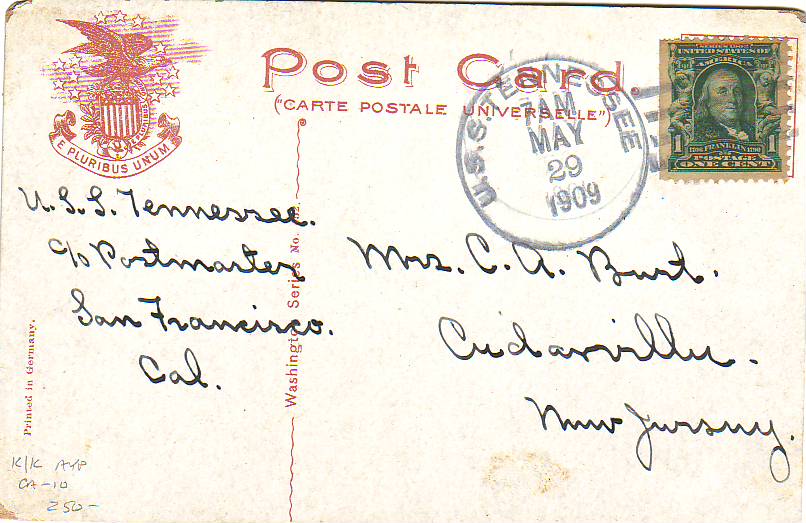 Post Card.
("CARTE POSTALE UNIVERSELLE")
E PLURIBUS UNUM
U.S.S. TENNESSEE
7 AM
MAY
29
1909
SERIES 1902
UNITED STATES OF
AMERICA
1 1
1706 FRANKLIN 1790
POSTAGE
ONE CENT
U.S.S. Tennessee.
c/o Postmaster
San Francisco.
Cal.
Mrs. C. A. Burt.
Cedarville.
New Jersey.
Washington Series No.
Printed in Germany.
K/K
CA-10
250-